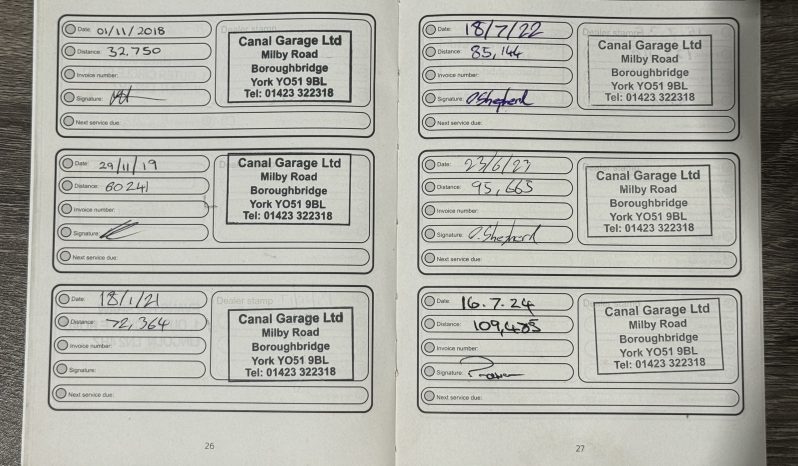 Date: 01/11/2018
Distance: 32.750
Invoice number:
Signature:
Next service due:
Dealer stamp
Canal Garage Ltd
Milby Road
Boroughbridge
York YO51 9BL
Tel: 01423 322318
Date: 29/11/19
Distance: 60241
Invoice number:
Signature:
Next service due:
Canal Garage Ltd
Milby Road
Boroughbridge
York YO51 9BL
Tel: 01423 322318
Date: 18/1/21
Distance: 72,364
Invoice number:
Signature:
Next service due:
Dealer stamp
Canal Garage Ltd
Milby Road
Boroughbridge
York YO51 9BL
Tel: 01423 322318
26
Date: 18/7/22
Distance: 85,144
Invoice number:
Signature: O.Shepherd
Next service due:
Dealer stamp
Canal Garage Ltd
Milby Road
Boroughbridge
York YO51 9BL
Tel: 01423 322318
Date: 23/6/23
Distance: 95,665
Invoice number:
Signature: O.Shepherd
Next service due:
Canal Garage Ltd
Milby Road
Boroughbridge
York YO51 9BL
Tel: 01423 322318
Date: 16.7.24
Distance: 109,485
Invoice number:
Signature:
Next service due:
Canal Garage Ltd
Milby Road
Boroughbridge
York YO51 9BL
Tel: 01423 322318
27